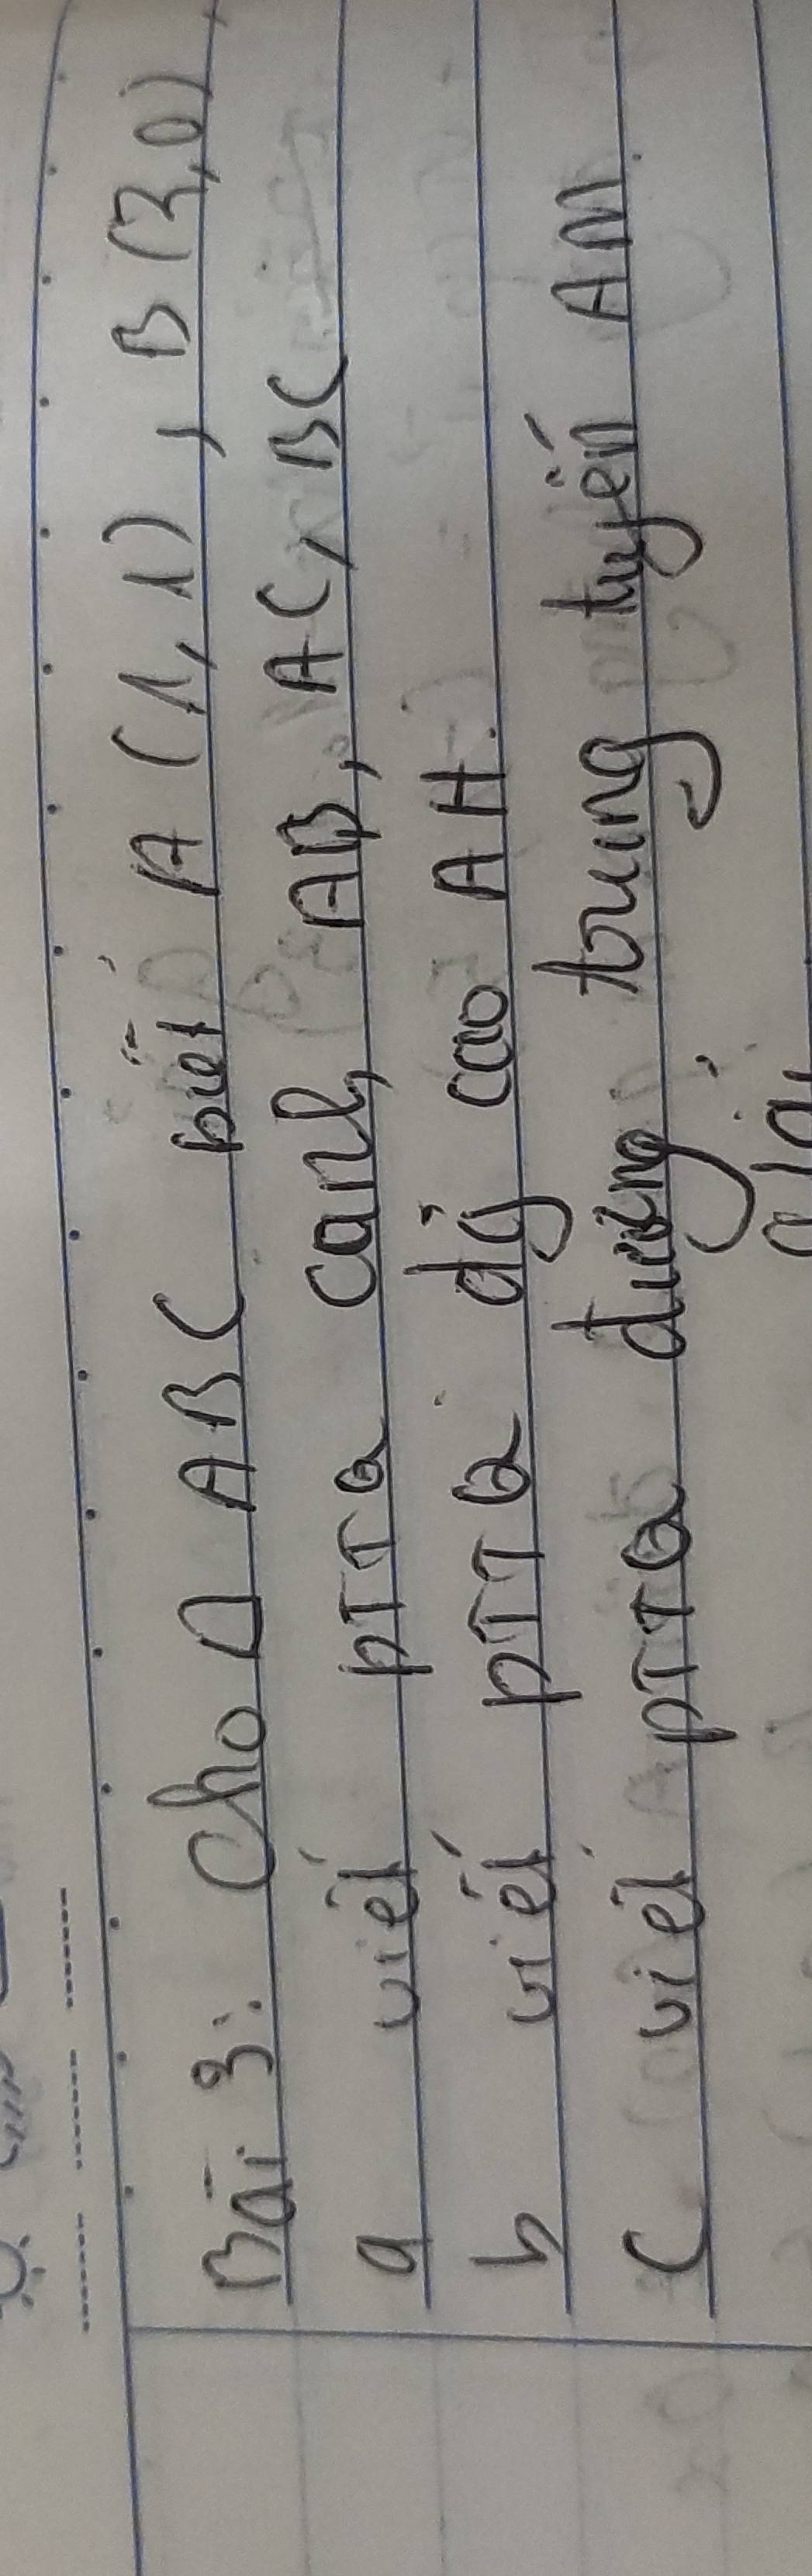 Bài 3: Cho △ ABC biết A (1, 1) , B (3, 0)
a viết PTTQ cạnh AB, AC, BC
b viết PTTQ đg cao AH.
c viết PTTQ đường trung tuyến AM.